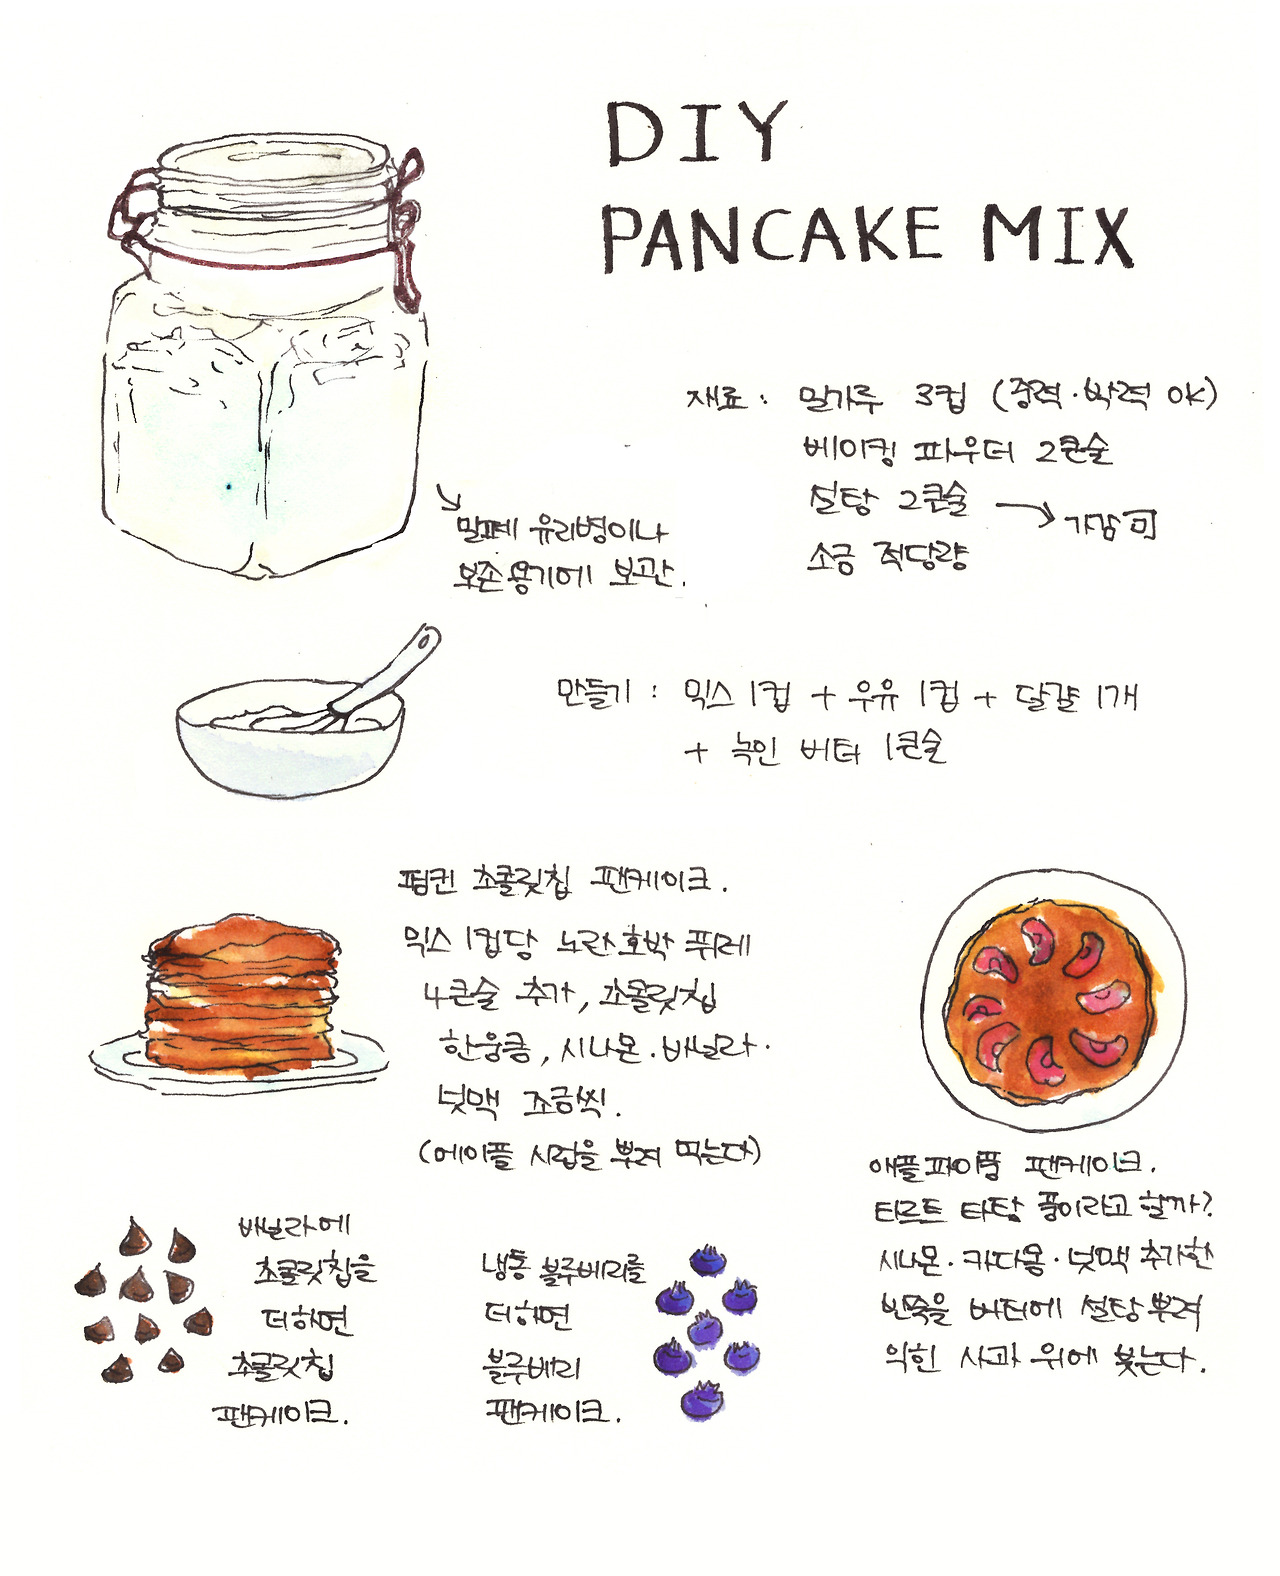 DIY
PANCAKE MIX
재료 : 밀가루 3컵 (중력·박력 OK)
베이킹 파우더 2큰술
설탕 2큰술 → 가감 可
소금 적당량
밀폐 유리병이나
보존용기에 보관.
만들기 : 믹스 1컵 + 우유 1컵 + 달걀 1개
+ 녹인 버터 1큰술
펌킨 초콜릿칩 팬케이크.
믹스 1컵당 노란호박 퓌레
4큰술 추가, 초콜릿칩
한웅큼, 시나몬·바닐라·
넛맥 조금씩.
(메이플 시럽을 뿌려 먹는다)
애플파이풍 팬케이크.
타르트 타탕 풍이라고 할까?
시나몬·카다몸·넛맥 추가한
반죽을 버터에 설탕뿌려
익힌 사과 위에 붓는다.
바닐라에
초콜릿칩을
더하면
초콜릿칩
팬케이크.
냉동 블루베리를
더하면
블루베리
팬케이크.